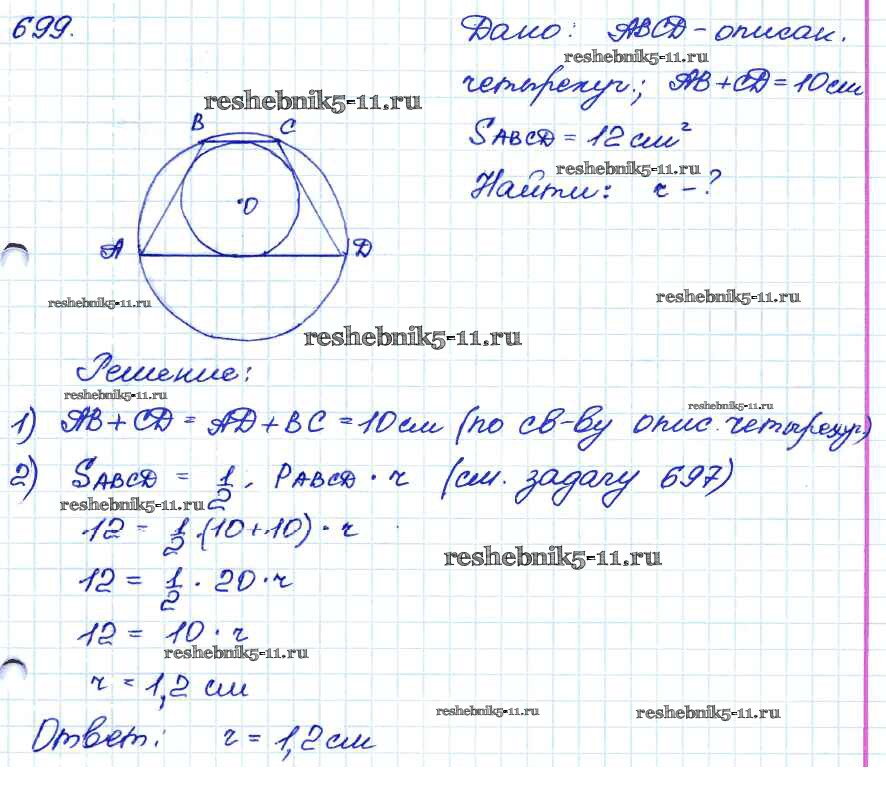 699.
Дано: ABCD - описан.
reshebnik5-11.ru
четырехуг.; AB + CD = 10 см
reshebnik5-11.ru
B C
SABCD = 12 см²
reshebnik5-11.ru
Найти: r - ?
O
A D
reshebnik5-11.ru
reshebnik5-11.ru
reshebnik5-11.ru
Решение:
reshebnik5-11.ru
reshebnik5-11.ru
1) AB + CD = AD + BC = 10 см (по св-ву опис. четырехуг.)
2) SABCD = 1/2 · PABCD · r (см. задачу 697)
reshebnik5-11.ru
12 = 1/2 · (10 + 10) · r
reshebnik5-11.ru
12 = 1/2 · 20 · r
12 = 10 · r
reshebnik5-11.ru
r = 1,2 см
reshebnik5-11.ru
reshebnik5-11.ru
Ответ: r = 1,2 см